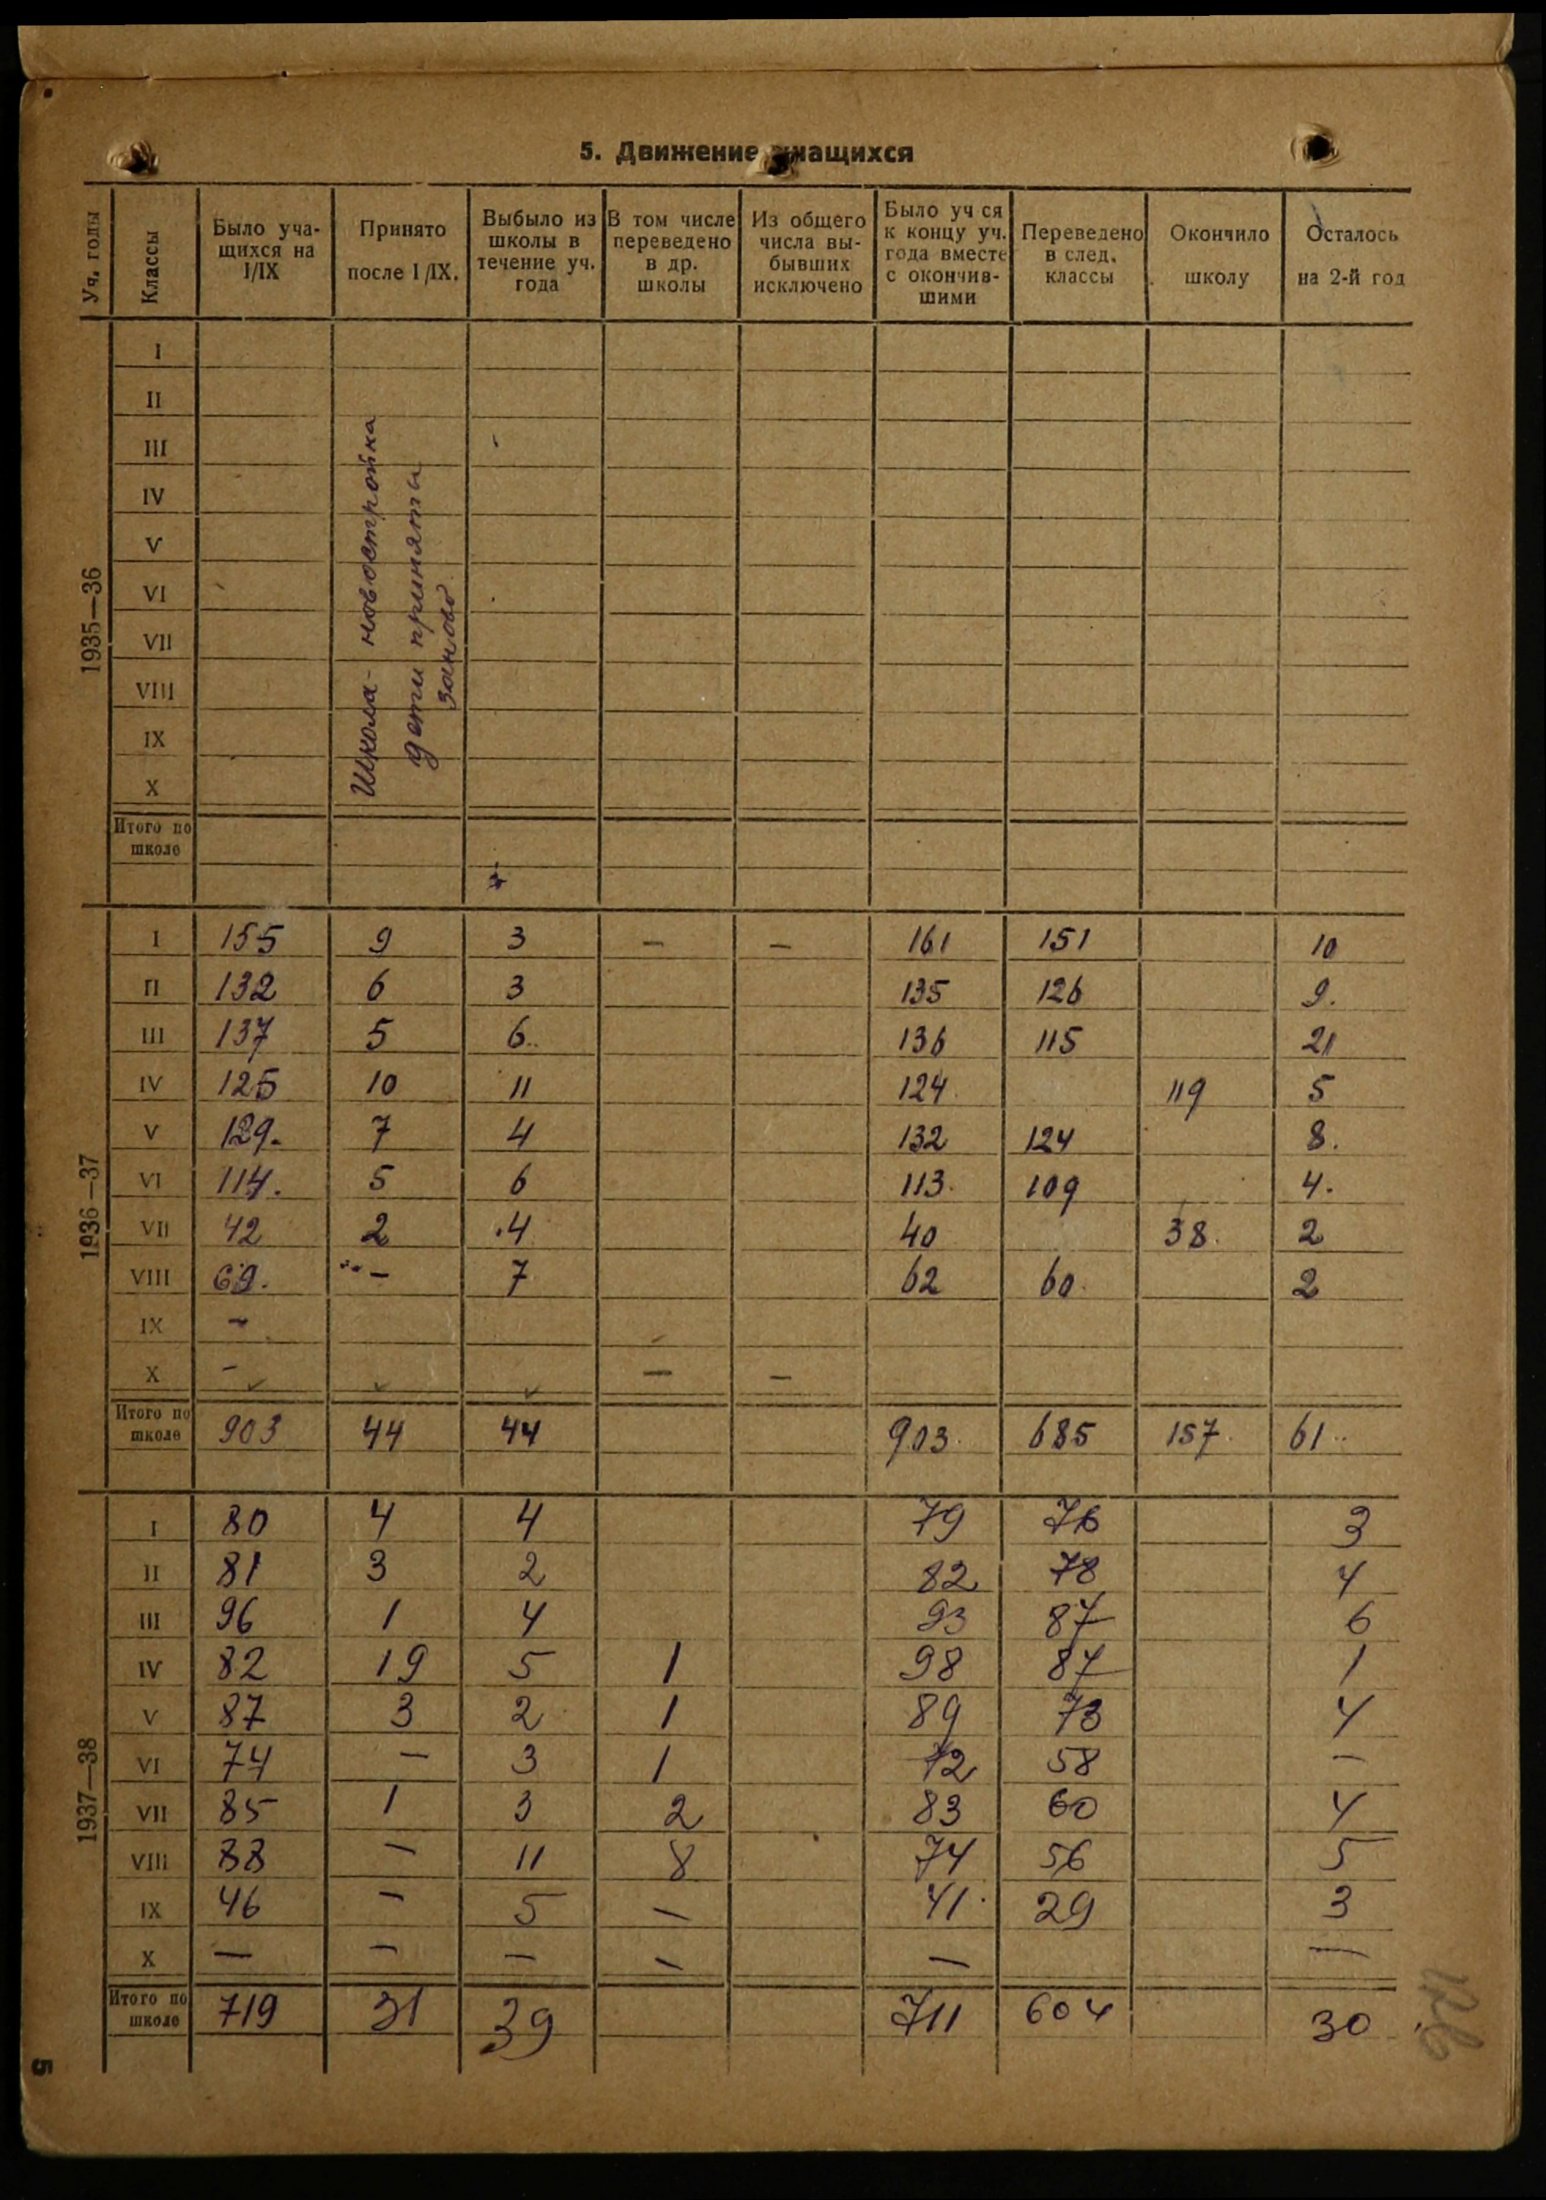 5. Движение учащихся
Уч. годы | Классы | Было уча-щихся на I/IX | Принято после I/IX. | Выбыло из школы в течение уч. года | В том числе переведено в др. школы | Из общего числа вы-бывших исключено | Было уч ся к концу уч. года вместе с окончив-шими | Переведено в след. классы | Окончило школу | Осталось на 2-й год
1935—36
I
II
III
IV
V
VI
VII
VIII
IX
X
Школа - новостройка
дети приняты
заново
Итого по школе
1936—37
I | 155 | 9 | 3 | — | — | 161 | 151 | | 10
II | 132 | 6 | 3 | | | 135 | 126 | | 9.
III | 137 | 5 | 6 | | | 136 | 115 | | 21
IV | 125 | 10 | 11 | | | 124 | | 119 | 5
V | 129. | 7 | 4 | | | 132 | 124 | | 8.
VI | 114. | 5 | 6 | | | 113 | 109 | | 4.
VII | 42 | 2 | 4 | | | 40 | | 38. | 2
VIII | 69. | — | 7 | | | 62 | 60 | | 2
IX | —
X | — | | | — | —
Итого по школе | 903 | 44 | 44 | | | 903 | 685 | 157 | 61
1937—38
I | 80 | 4 | 4 | | | 79 | 76 | | 3
II | 81 | 3 | 2 | | | 82 | 78 | | 4
III | 96 | 1 | 4 | | | 93 | 87 | | 6
IV | 82 | 19 | 5 | 1 | | 98 | 87 | | 1
V | 87 | 3 | 2 | 1 | | 89 | 73 | | 4
VI | 74 | — | 3 | 1 | | 72 | 58 | | —
VII | 85 | 1 | 3 | 2 | | 83 | 60 | | 4
VIII | 88 | — | 11 | 8 | | 74 | 56 | | 5
IX | 46 | — | 5 | — | | 41 | 29 | | 3
X | — | — | — | — | | — | | | —
Итого по школе | 719 | 31 | 39 | | | 711 | 604 | | 30
5